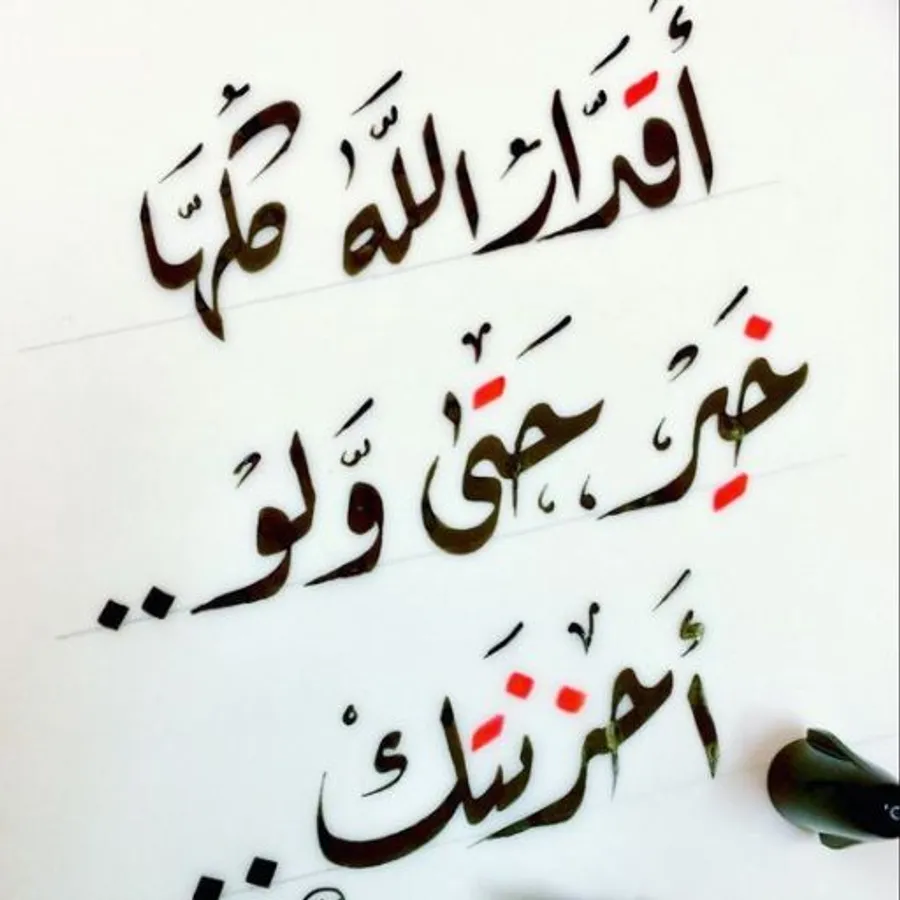 أَقدَّارُ اللَّهُ كُلهَّا
خَيرُ حَتى وَّلوُ ..
أَحزنتَكْ ..